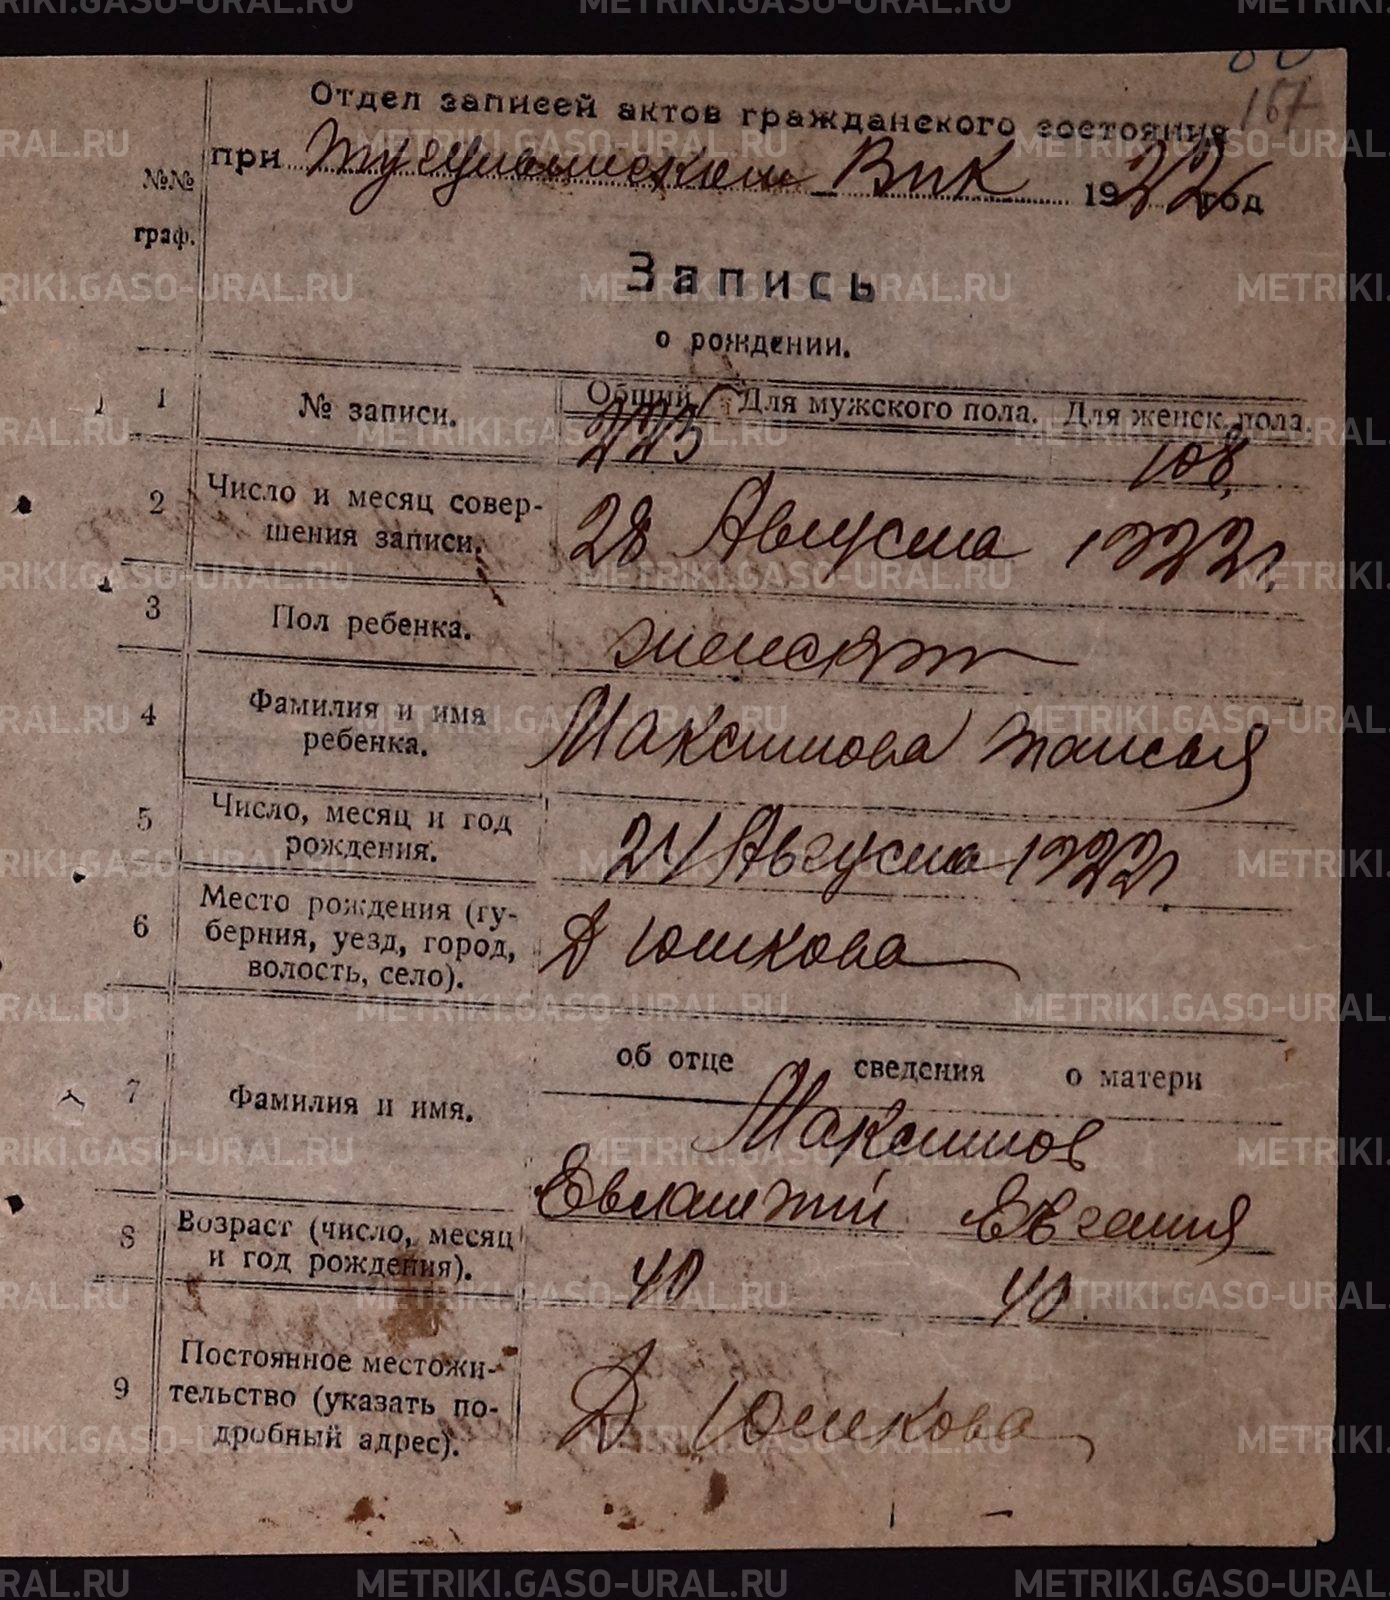 167
Отдел записей актов гражданского состояния
при Тугулымском Вик 1922 год
№№ граф.
Запись
о рождении.
1 № записи. Общий 225 Для мужского пола. Для женск. пола. 108
2 Число и месяц совершения записи. 28 Августа 1922 г.
3 Пол ребенка. женск
4 Фамилия и имя ребенка. Максимова Таисья
5 Число, месяц и год рождения. 24 Августа 1922 г
6 Место рождения (губерния, уезд, город, волость, село). Д Юшкова
об отце сведения о матери
7 Фамилия и имя. Максимов
Евлампий Евгения
8 Возраст (число, месяц и год рождения). 40 40
9 Постоянное местожительство (указать подробный адрес). Д Юшкова
METRIKI.GASO-URAL.RU